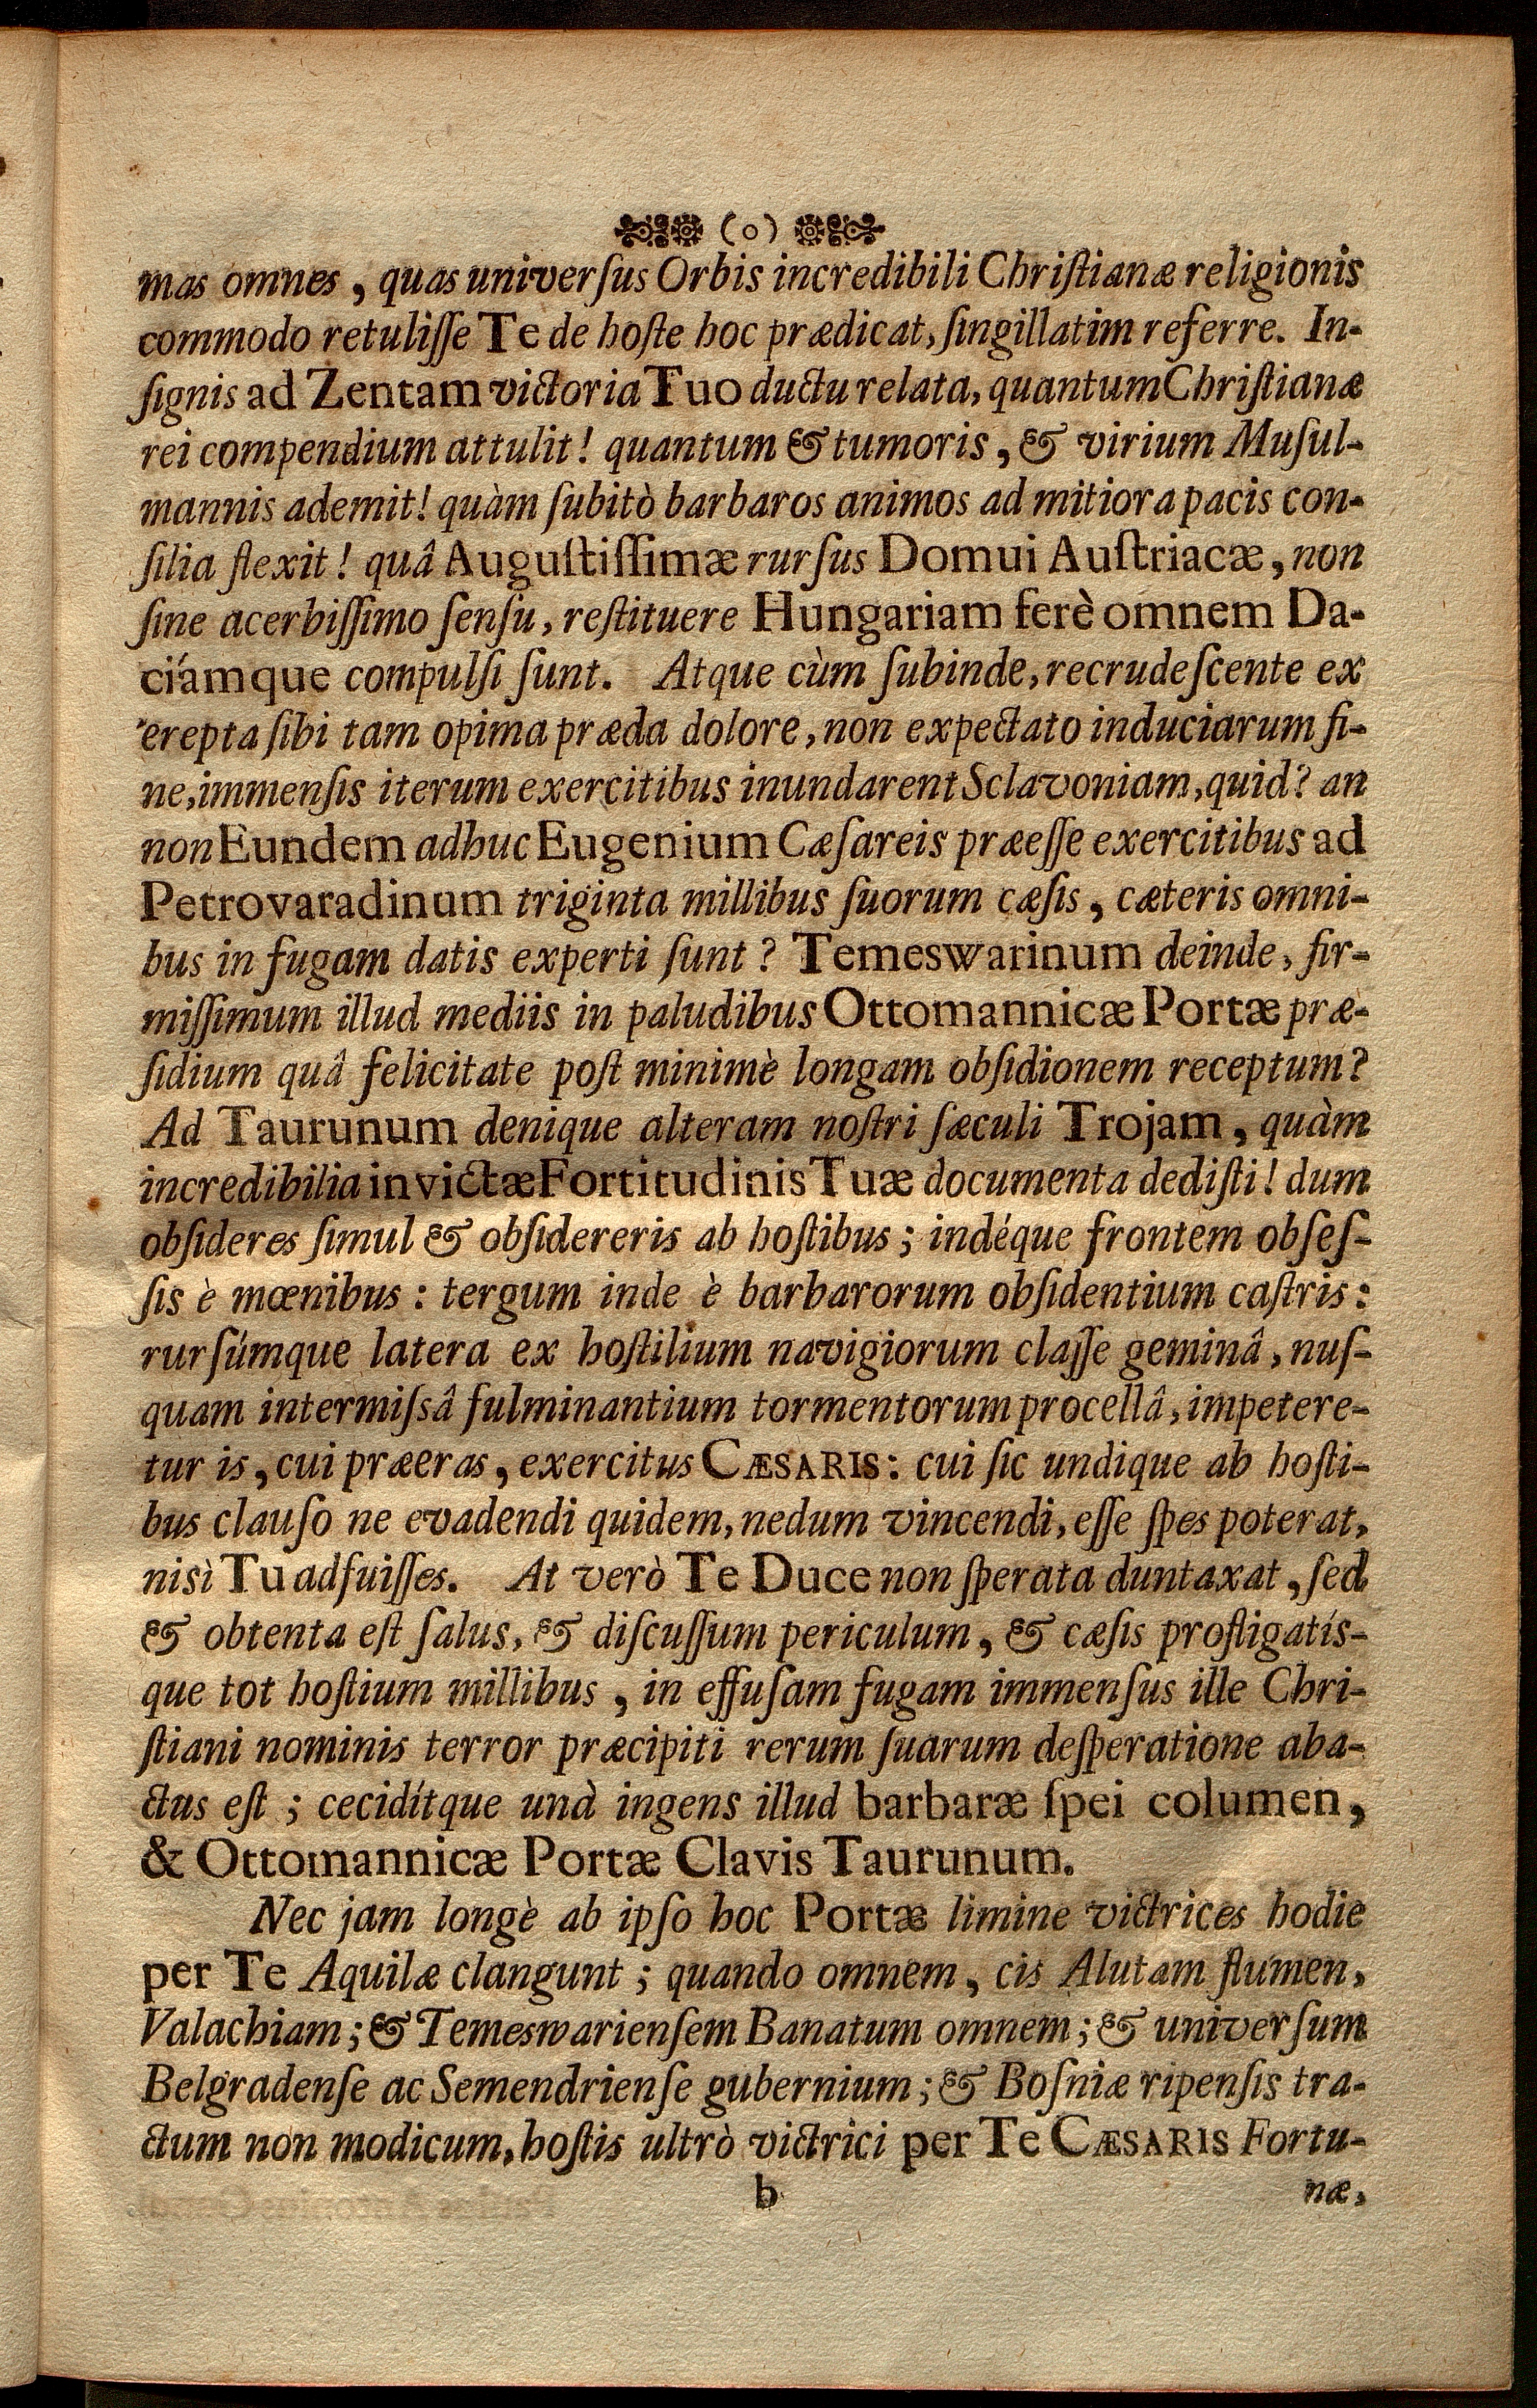 (o)
mas omnes, quas univerſus Orbis incredibili Chriſtianæ religionis
commodo retuliſſe Te de hoſte hoc prædicat, ſingillatim referre. In-
ſignis ad Zentam victoria Tuo ductu relata, quantum Chriſtianæ
rei compendium attulit! quantum & tumoris, & virium Muſul-
mannis ademit! quàm ſubitò barbaros animos ad mitiora pacis con-
ſilia flexit! quâ Auguſtiſſimæ rurſus Domui Auſtriacæ, non
ſine acerbiſſimo ſenſu, reſtituere Hungariam ferè omnem Da-
ciámque compulſi ſunt. Atque cùm ſubinde, recrudeſcente ex
erepta ſibi tam opima præda dolore, non expectato induciarum fi-
ne, immenſis iterum exercitibus inundarent Sclavoniam, quid? an
non Eundem adhuc Eugenium Cæſareis præeſſe exercitibus ad
Petrovaradinum triginta millibus ſuorum cæſis, cæteris omni-
bus in fugam datis experti ſunt? Temeswarinum deinde, fir-
miſſimum illud mediis in paludibus Ottomannicæ Portæ præ-
ſidium quâ felicitate poſt minimè longam obſidionem receptum?
Ad Taurunum denique alteram noſtri ſæculi Trojam, quàm
incredibilia invictæ Fortitudinis Tuæ documenta dediſti! dum
obſideres ſimul & obſidereris ab hoſtibus; indéque frontem obſeſ-
ſis è mœnibus: tergum inde è barbarorum obſidentium caſtris:
rurſúmque latera ex hoſtilium navigiorum claſſe geminâ, nuſ-
quam intermiſsâ fulminantium tormentorum procellâ, impetere-
tur is, cui præeras, exercitus CÆSARIS: cui ſic undique ab hoſti-
bus clauſo ne evadendi quidem, nedum vincendi, eſſe ſpes poterat,
nisì Tu adfuiſſes. At verò Te Duce non ſperata duntaxat, ſed
& obtenta eſt ſalus, & diſcuſſum periculum, & cæſis profligatís-
que tot hoſtium millibus, in effuſam fugam immenſus ille Chri-
ſtiani nominis terror præcipiti rerum ſuarum deſperatione aba-
ctus eſt; cecidítque unà ingens illud barbaræ ſpei columen,
& Ottomannicæ Portæ Clavis Taurunum.
Nec jam longè ab ipſo hoc Portæ limine victrices hodie
per Te Aquilæ clangunt; quando omnem, cis Alutam flumen,
Valachiam; & Temeswarienſem Banatum omnem; & univerſum
Belgradenſe ac Semendrienſe gubernium; & Boſniæ ripenſis tra-
ctum non modicum, hoſtis ultrò victrici per Te CÆSARIS Fortu-
b
næ,